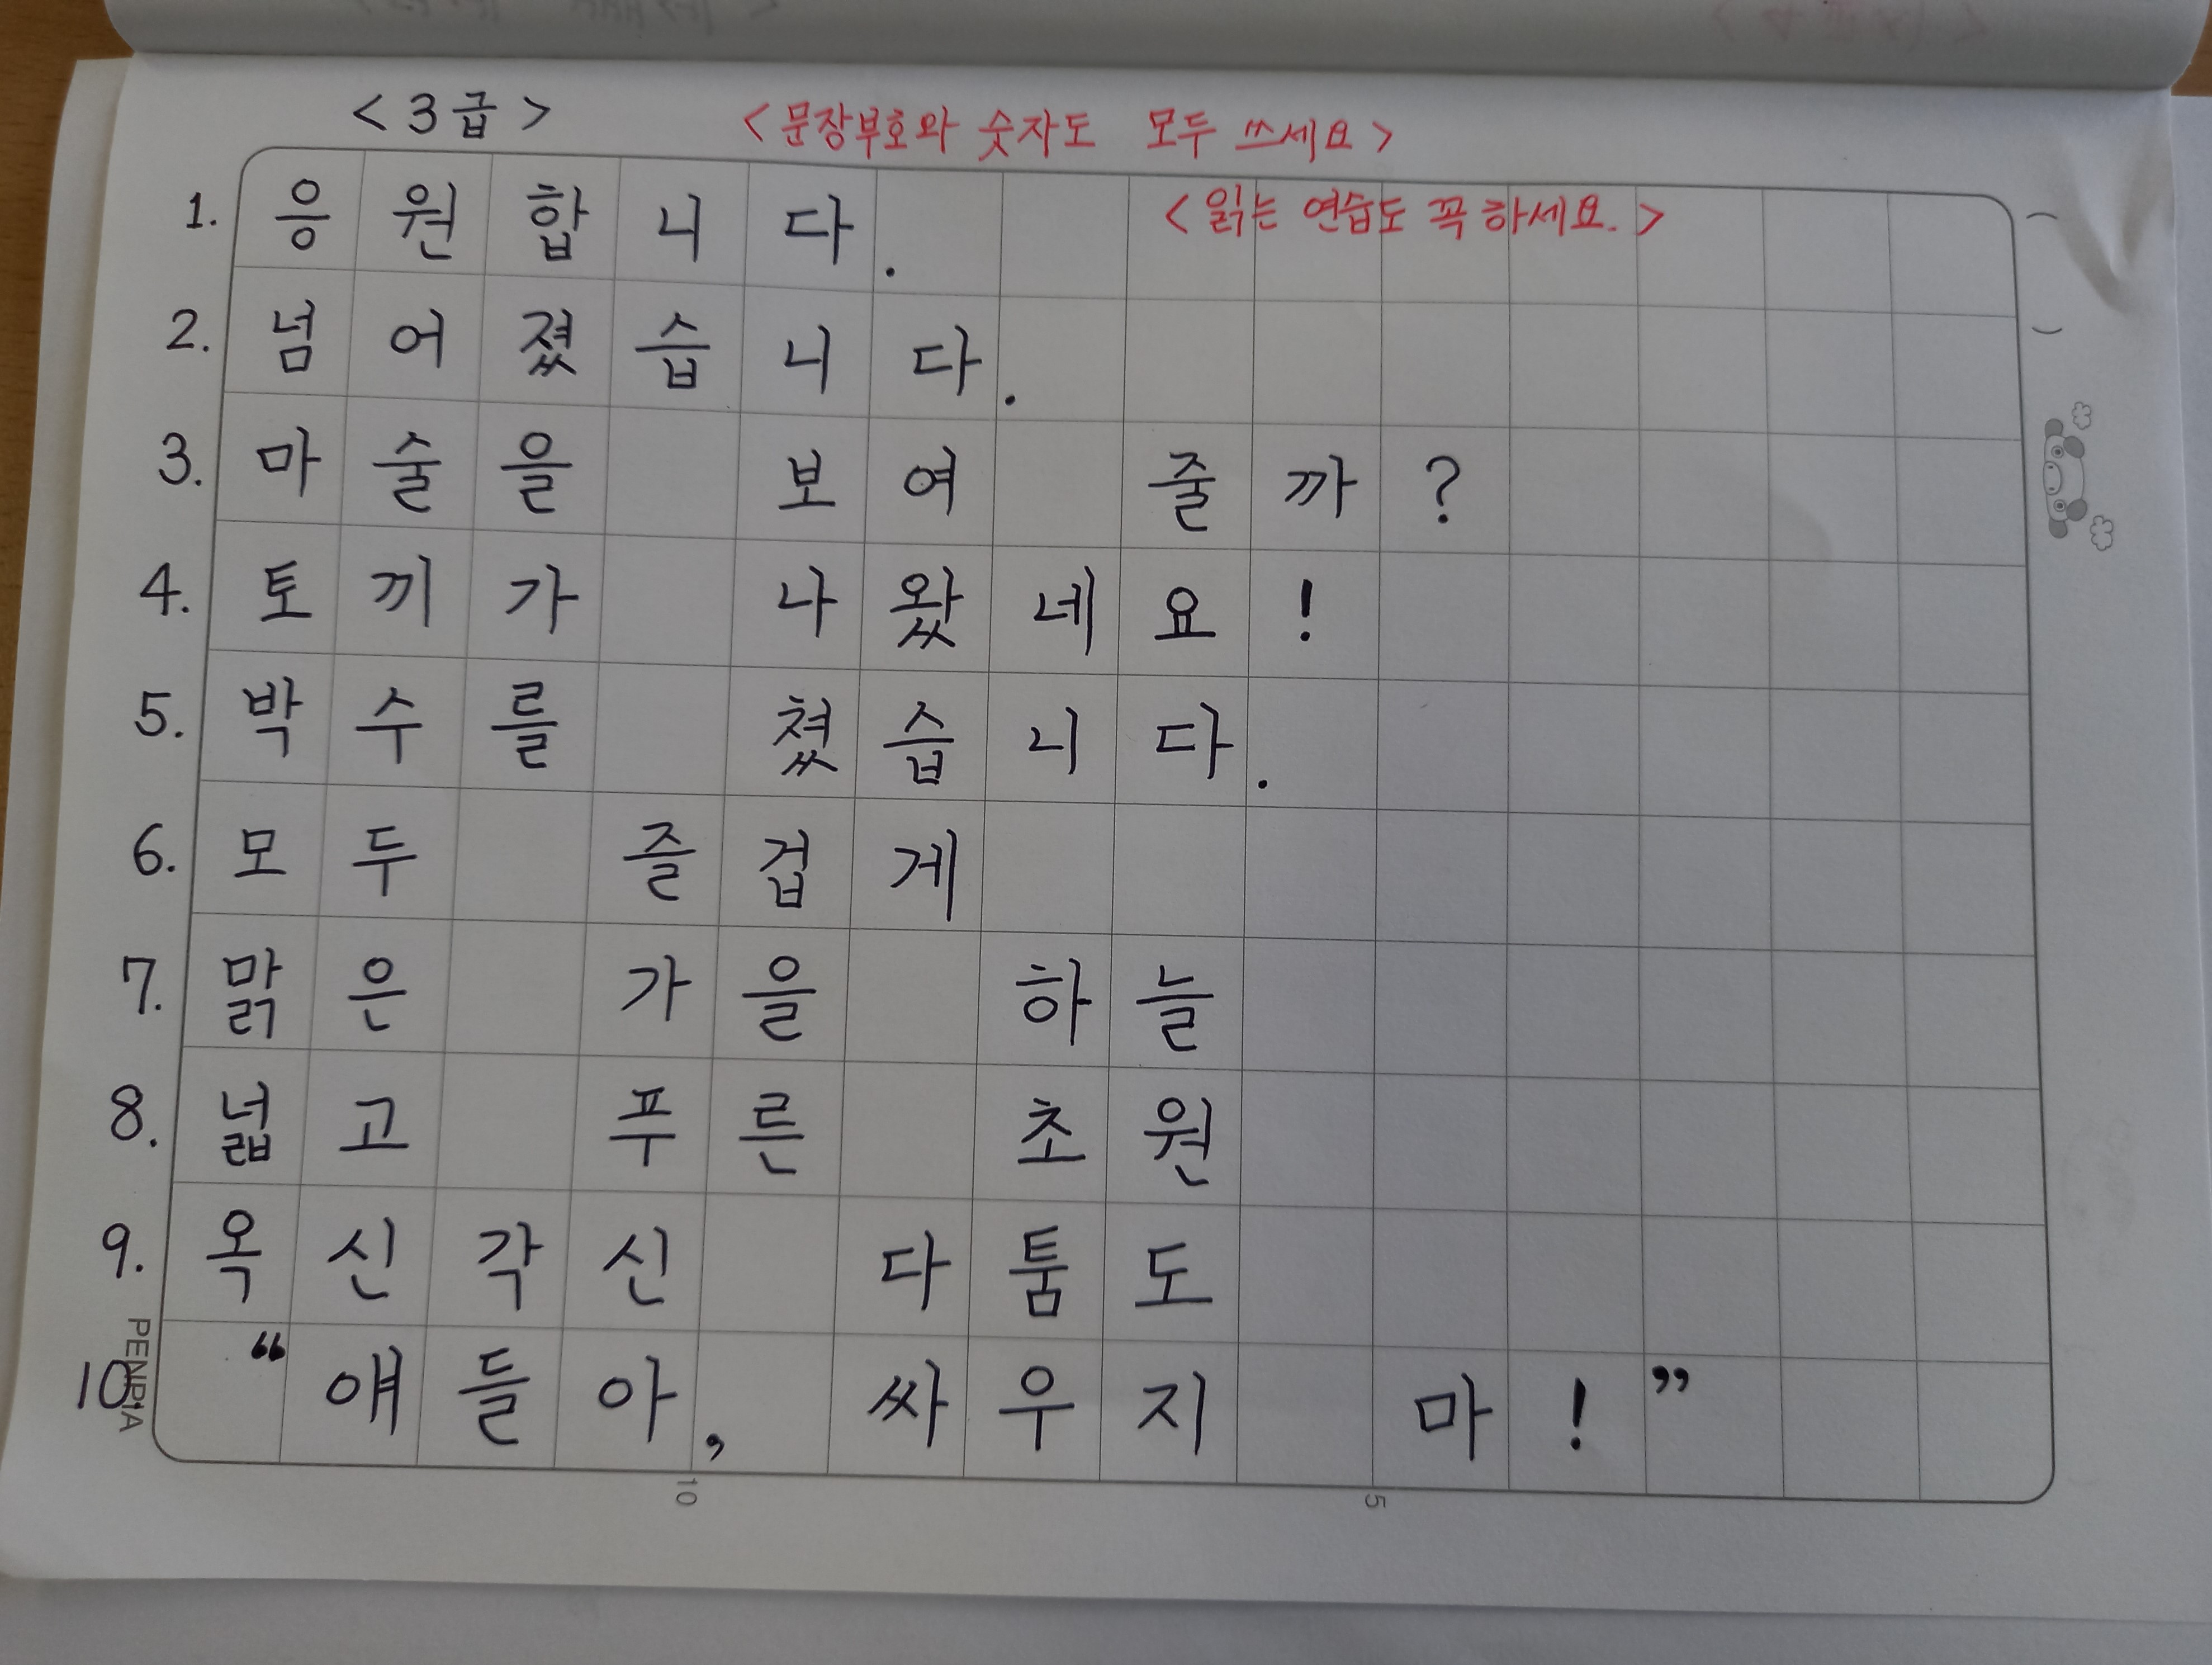 <3급> <문장부호와 숫자도 모두 쓰세요>
<읽는 연습도 꼭 하세요.>
1. 응원합니다.
2. 넘어졌습니다.
3. 마술을 보여 줄까?
4. 토끼가 나왔네요!
5. 박수를 쳤습니다.
6. 모두 즐겁게
7. 맑은 가을 하늘
8. 넓고 푸른 초원
9. 옥신각신 다툼도
10. “얘들아, 싸우지 마!”
PENPIA
10 5